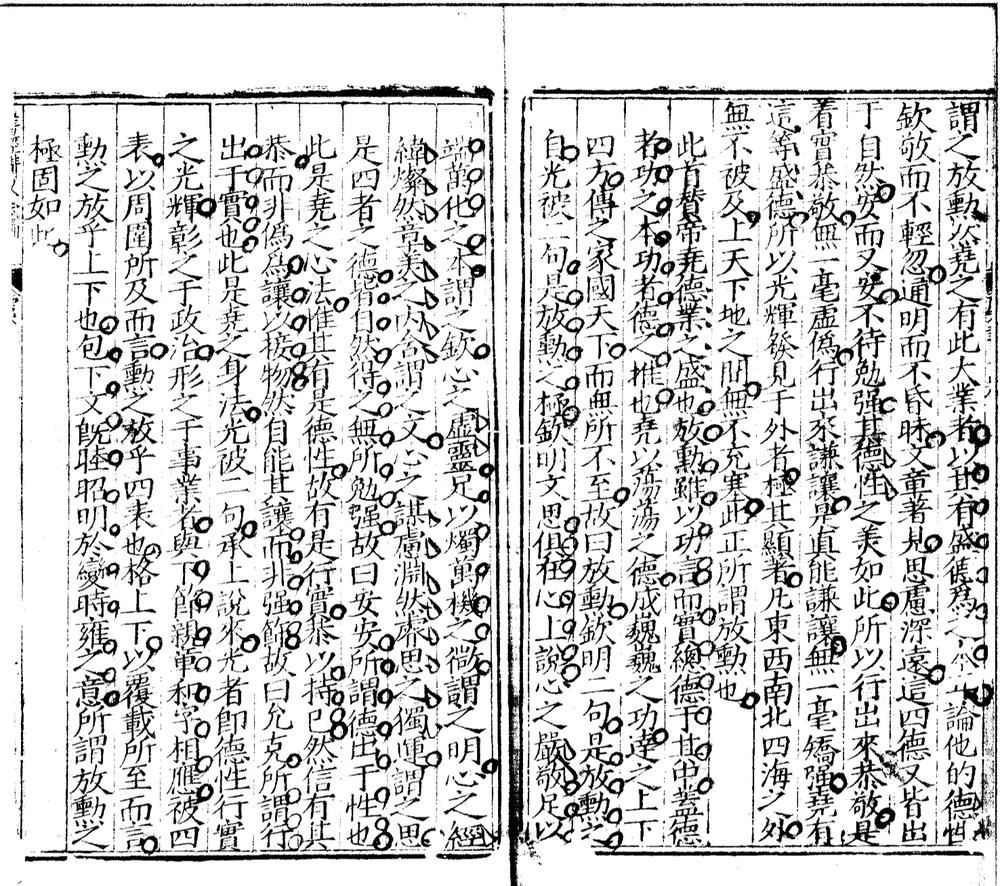 謂之放勳然堯之有此大業者以其有盛德爲之本論他的德性
欽敬而不輕忽通明而不昏昧文章著見思慮深遠這四德又皆出
于自然安而又安不待勉强其德性之美如此所以行出來恭敬是
着實恭敬無一毫虛僞行出來謙讓是真能謙讓無一毫矯强堯有
這等盛德所以光輝發見于外者極其顯著凡東西南北四海之外
無不被及上天下地之間無不充塞此正所謂放勳也
此首賛帝堯德業之盛也放勳雖以功言而實總德于其中蓋德
者功之本功者德之推也堯以蕩蕩之德成巍巍之功達之上下
四方傳之家國天下而無所不至故曰放勳欽明二句是放勳之
自光被二句是放勳之極欽明文思俱在心上說心之嚴敬足以
端萬化之本謂之欽心之虛靈足以燭萬機之微謂之明心之經
緯燦然章美之內含謂之文心之謀慮淵然睿思之獨運謂之思
是四者之德皆自然得之無所勉强故曰安安所謂德出于性也
此是堯之心法惟其有是德性故有是行實恭以持已然信有其
恭而非僞爲讓以接物然自能其讓而非强飾故曰允克所謂行
出于實也此是堯之身法光被二句承上說來光者即德性行實
之光輝彰之于政治形之于事業者與下節親章和字相應被四
表以周圍所及而言勳之放乎四表也格上下以覆載所至而言
勳之放乎上下也句下文旣睦昭明於變時雍之意所謂放勳之
極固如此